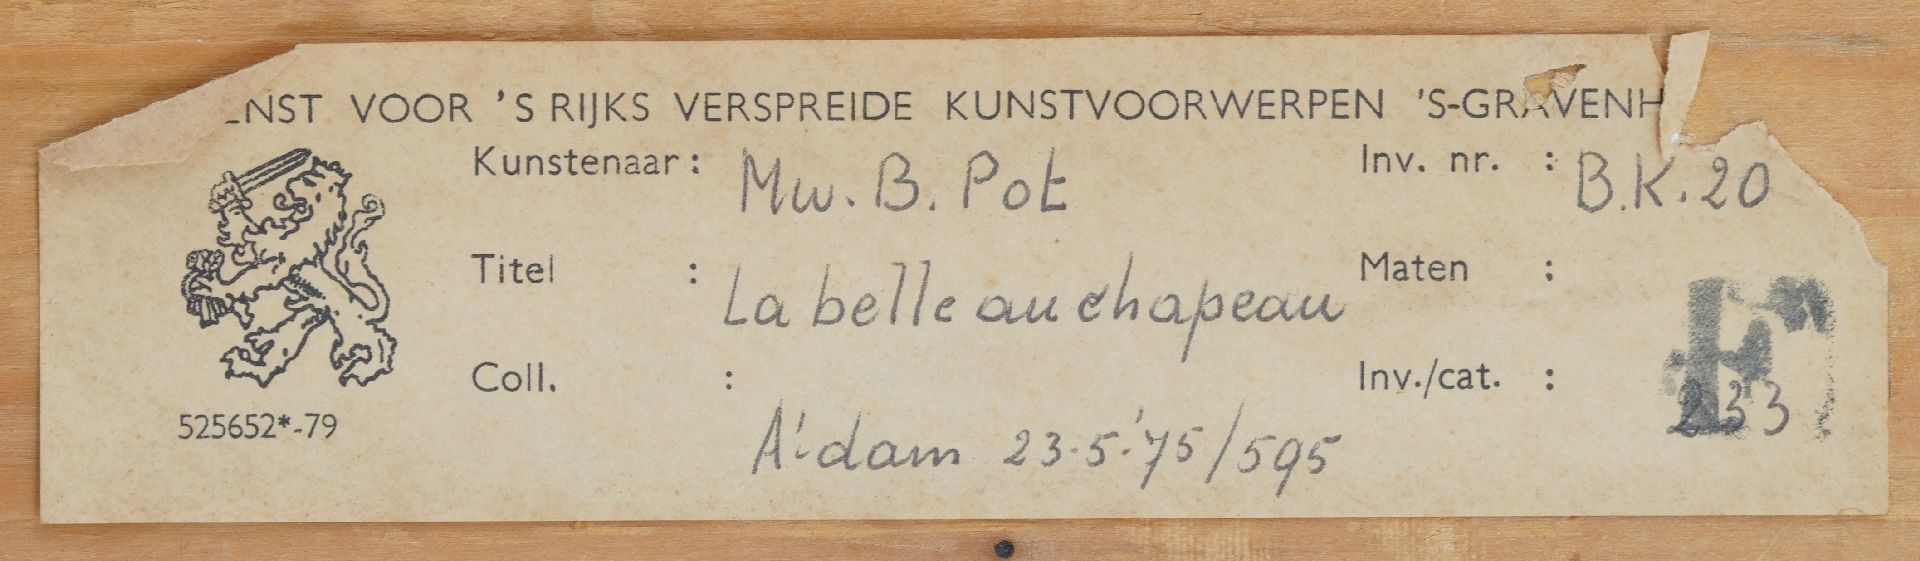 ENST VOOR 'S RIJKS VERSPREIDE KUNSTVOORWERPEN 'S-GRAVENH
Kunstenaar: Mw. B. Pot Inv. nr. : B.K. 20
Titel : La belle au chapeau Maten :
Coll. : A'dam 23-5-'75/595 Inv./cat. : 233
525652*-79